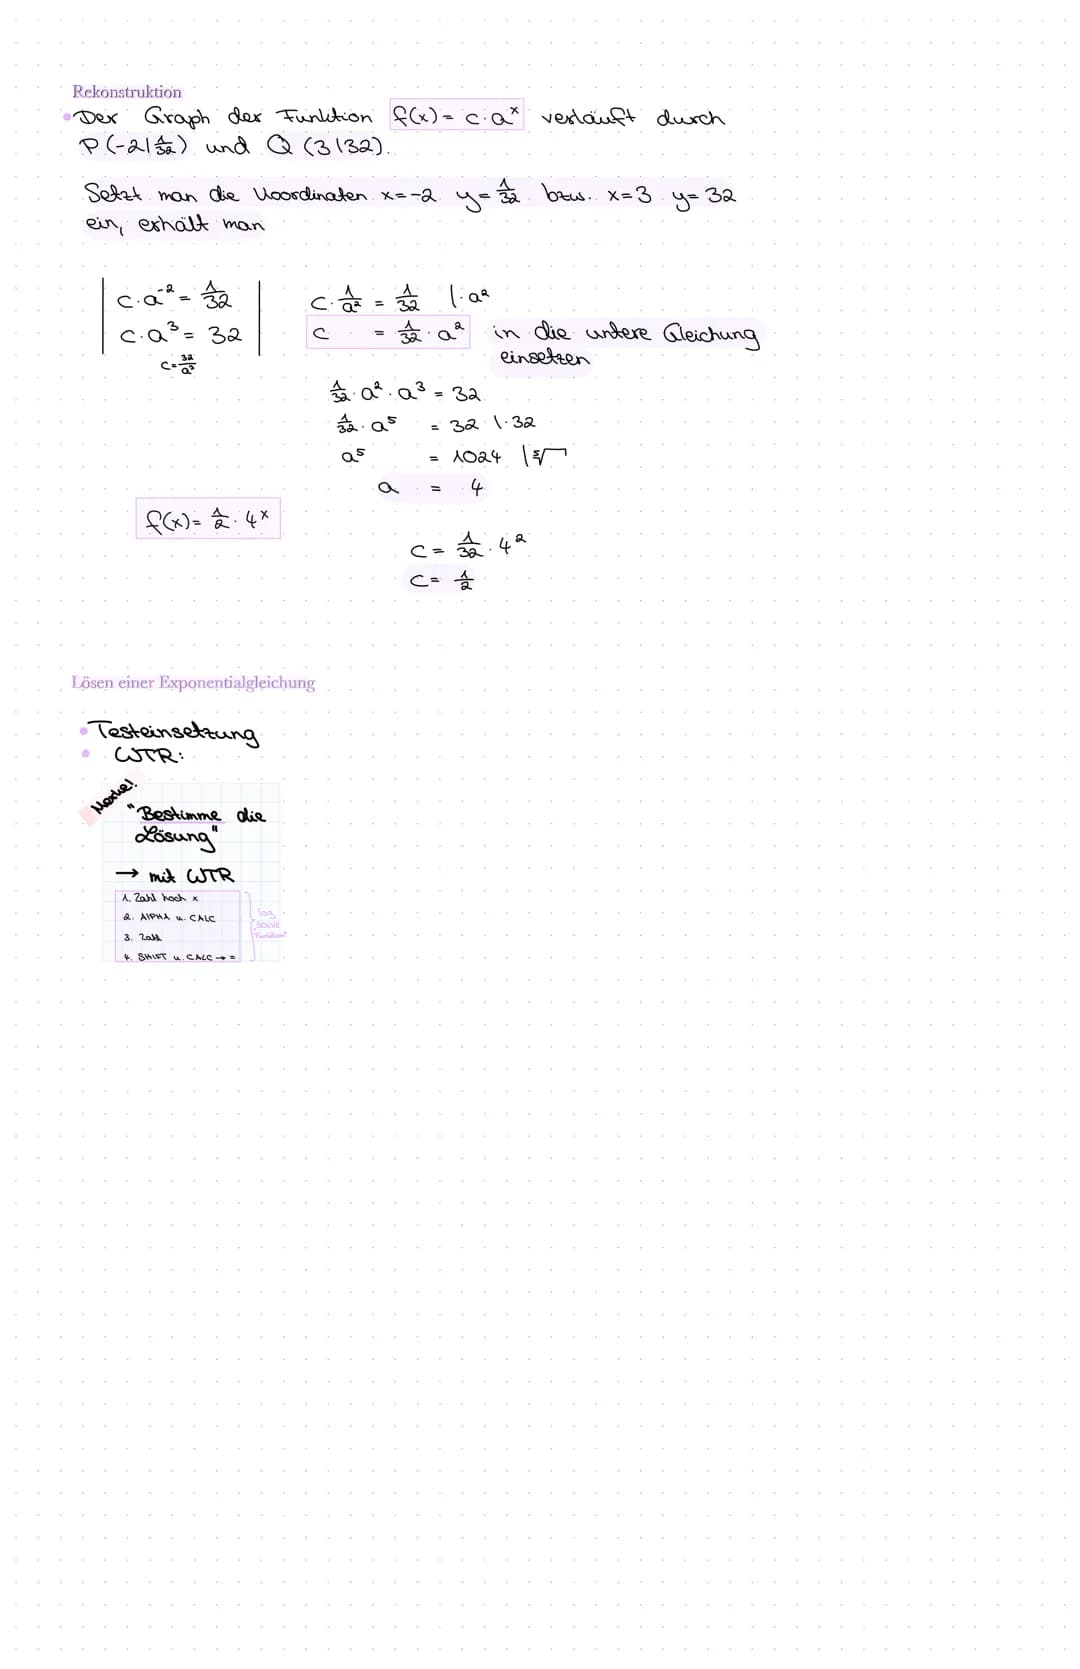 Rekonstruktion
• Der Graph der Funktion f(x) = c · a^x verläuft durch
P(-2|1/32) und Q (3|32).
Setzt man die Koordinaten x=-2 y=1/32 bzw. x=3 y=32
ein, erhält man
c·a^-2 = 1/32
c·a^3 = 32
c=32/a^3
c·1/a^2 = 1/32 |·a^2
c = 1/32 · a^2 in die untere Gleichung
einsetzen
1/32 · a^2 · a^3 = 32
1/32 · a^5 = 32 |·32
a^5 = 1024 |⁵√
a = 4
f(x) = 1/2 · 4^x
c = 1/32 · 4^2
c = 1/2
Lösen einer Exponentialgleichung
• Testeinsetzung
• WTR:
Merke!
"Bestimme die
Lösung"
→ mit WTR
1. Zahl hoch x
2. AlPHA u. CALC
3. Zahl
4. SHIFT u. CALC → =
log
"SOLVE
Funktion"